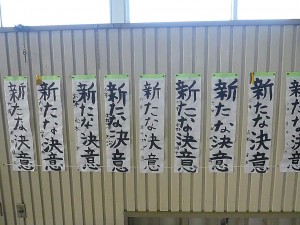 新たな決意
新たな決意
新たな決意
新たな決意
新たな決意
新たな決意
新たな決意
新たな決意